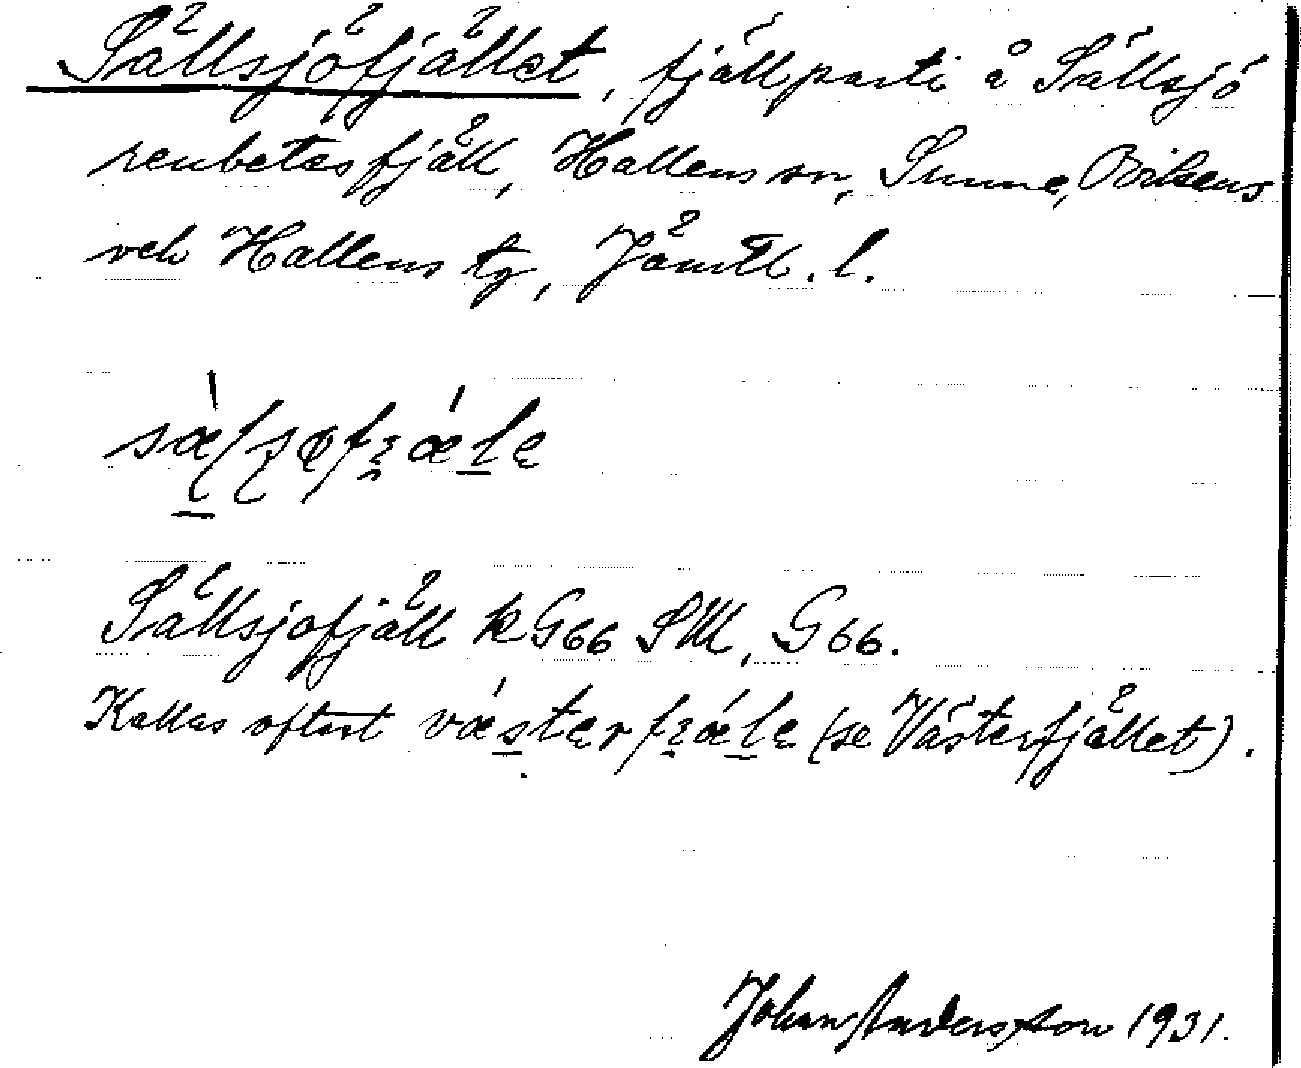 Sällsjöfjället, fjällparti å Sällsjö
renbetesfjäll, Hallens sn, Sunne, Oviksens
och Hallens tg, Jämtl. l.
Sällsjofjäll k G66 SM, G66.
Kallas oftast (se Västerfjället).
Johan Andersson 1931.